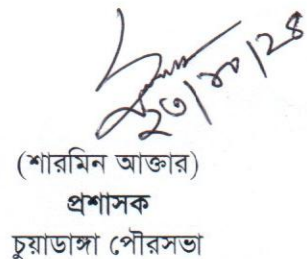 ২৩/১০/২৪
(শারমিন আক্তার)
প্রশাসক
চুয়াডাঙ্গা পৌরসভা